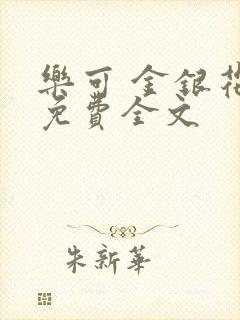 樂可 金銀花
免費全文
朱新華